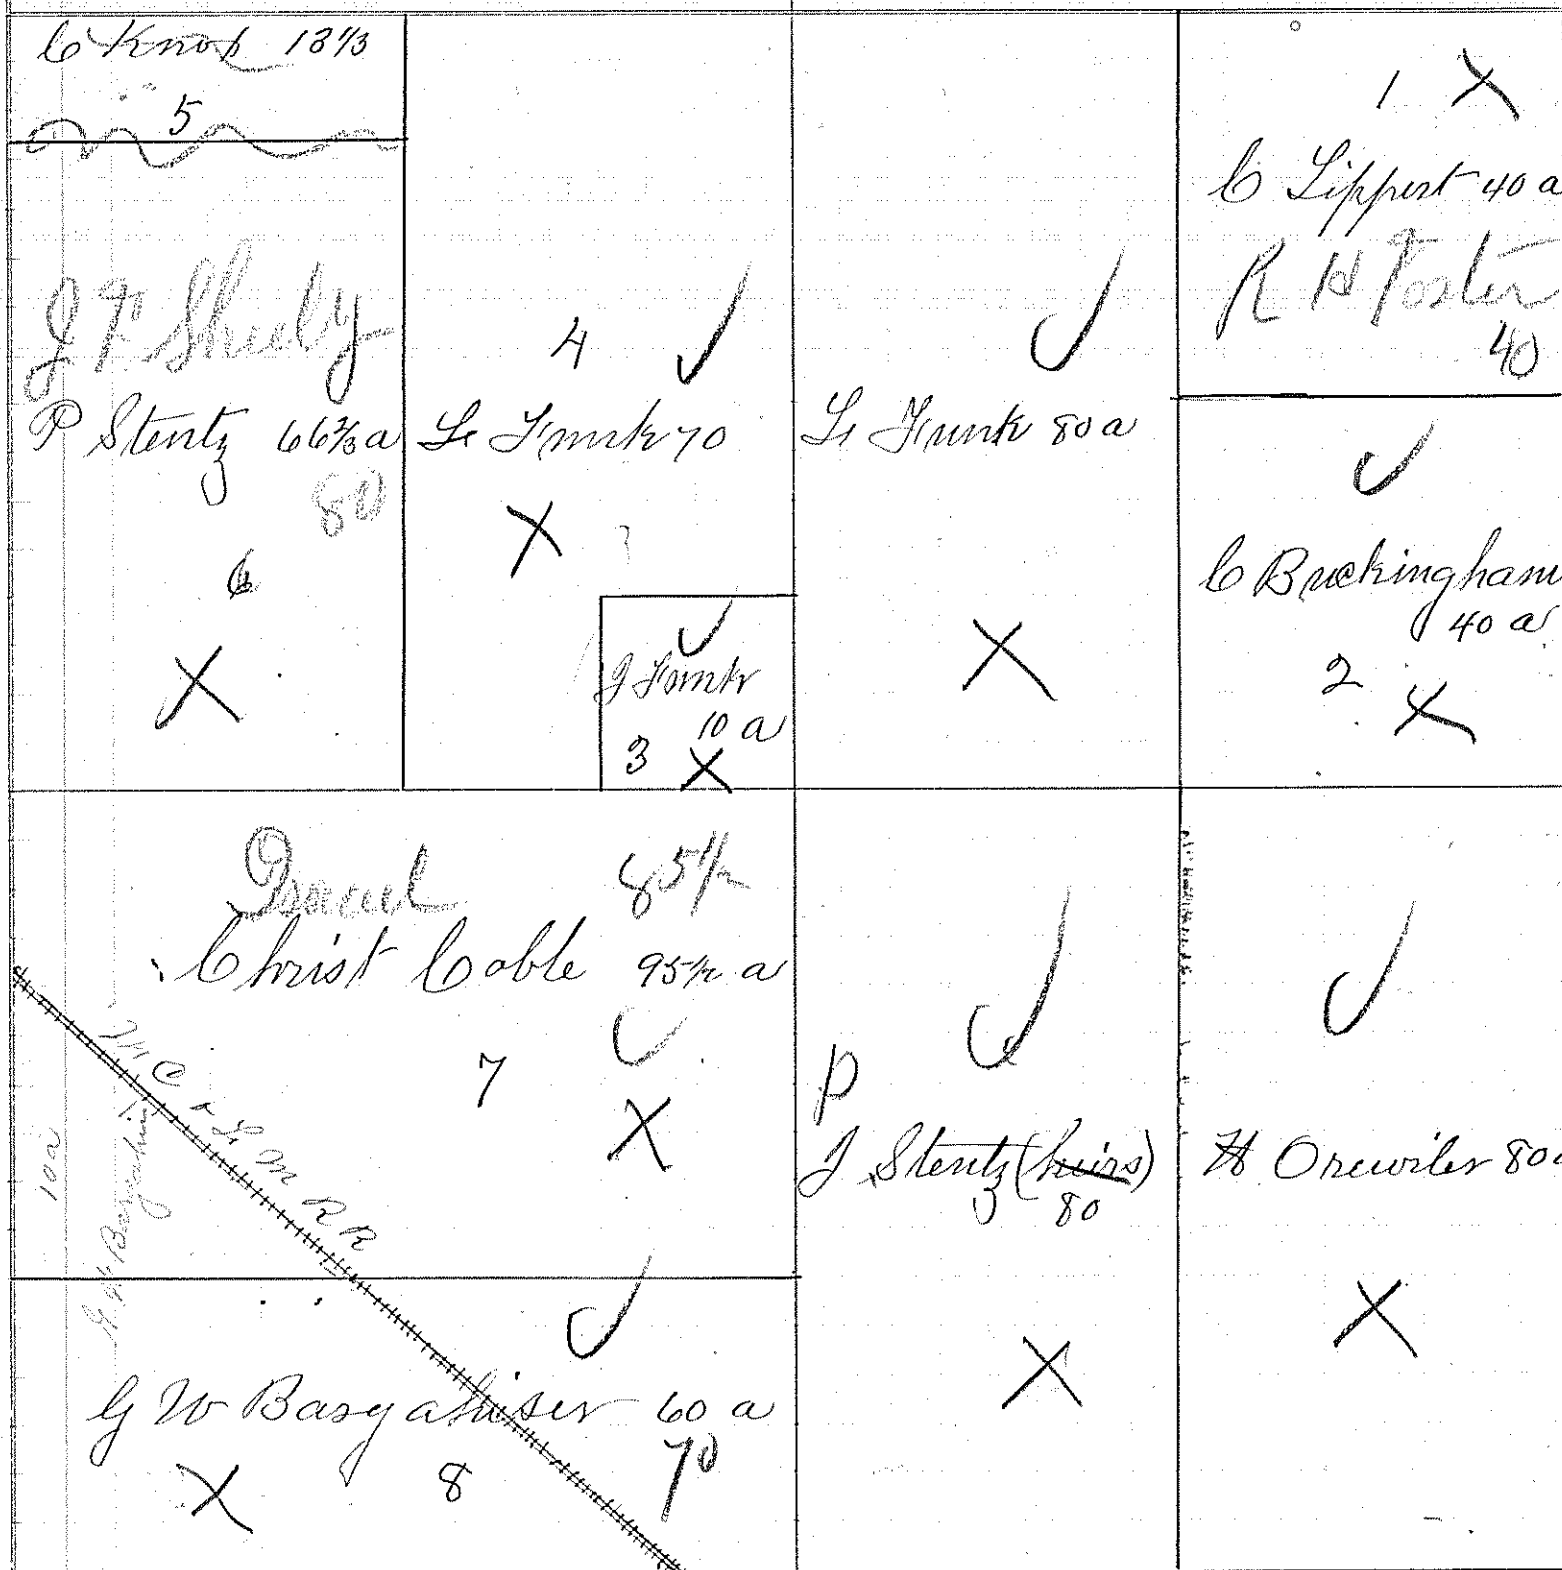 C Knop 13 1/3
5
J F Sheely
P Stentz 66 2/3 a
80
6
X
4
L Funk 70
X
J Funk
10 a
3 X
L Funk 80 a
X
1 X
C Lippert 40 a
R H Foster
40
C Buckingham
40 a
2
X
Israel 85 1/2
Christ Coble 95 1/2 a
7
X
C & L M R R
10 a
G W Basyahiser 60 a
70
X 8
P
J Stentz (heirs)
80
X
H Orewiler 80 a
X